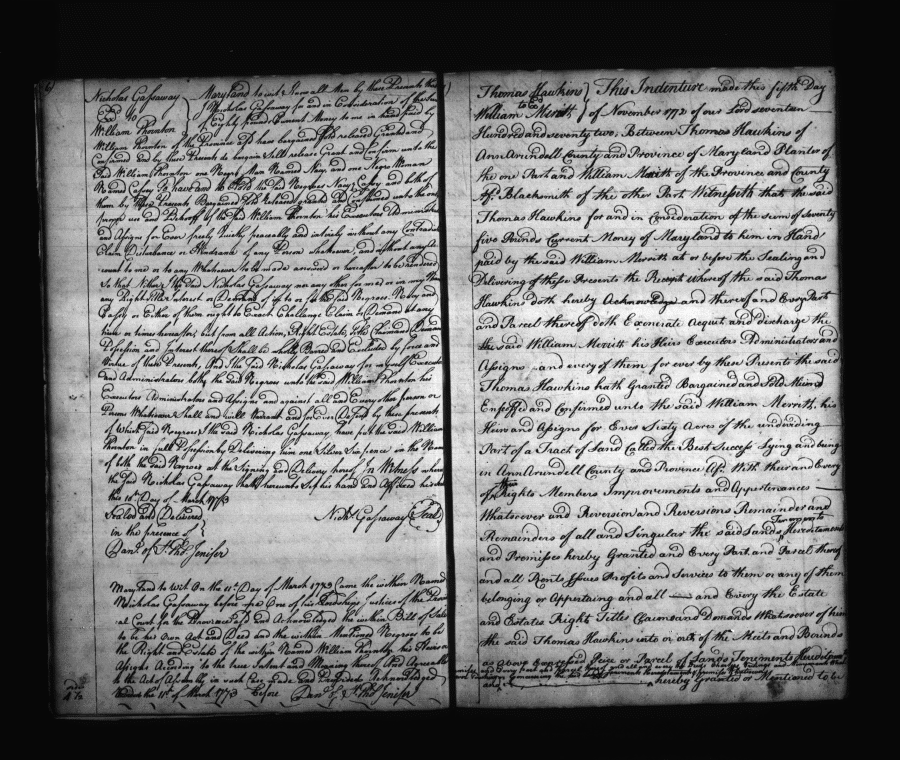 Nicholas Gassaway
To
William Thornton
Maryland to wit Know all Men by these Presents that
Nicholas Gassaway for and in Consideration of the Sum
Eighty Pounds Current Money to me in hand paid by
William Thornton of the Province Afd. have bargained Sold released Granted and
Confirmed and by these Presents do bargain Sell release Grant and Confirm unto the
Said William Thornton one Negro Man Named Nacy and one Negro Woman
Named Cassey To have and to Hold the said Negroes Nacy Cassey and both of
them by these Presents Bargained Sold Released granted and Confirmed unto the only
proper use and Behoof of the said William Thornton his Executors Administrators
and Assigns for Ever freely Quietly peaceably and intirely without any Contradict
Claim Disturbance or Hindrance of any Person Whatsoever, and without any Ac
count to me or to any Whatsoever to be made answered or hereafter to be rendered
So that Neither I the said Nicholas Gassaway nor any other for me or in my Name
any Right Title Interest or Demand of in to or for the said Negroes Nacy and
Cassey or Either of them ought to Exact Challenge Claim or Demand at any
time or times hereafter, but from all Action, Right Estate, Title Claim and Demand
Possession and Interest thereof Shall be wholly Barred and Excluded by force and
Virtue of these Presents, And I the said Nicholas Gassaway for myself Executors
and Administrators the said Negroes unto the said William Thornton his
Executors Administrators and Assigns and against all and Every other person or
Persons Whatsoever Shall and will Warrant and for Ever Defend by these presents
of Which Said Negroes I the said Nicholas Gassaway, have put the said William
Thornton in full Possession by Delivering him one Silver Sixpence in the Name
of both the said Negroes at the Signing and Delivery hereof In Witness where
the said Nicholas Gassaway hath hereunto Set his hand and Affixed his
this 10th Day of March 1773
Sealed and Delivered
Nichs. Gassaway (Seal)
in the presence of
Dan. of St. Thos. Jenifer
Maryland to Wit On the 11th Day of March 1773 Came the within Named
Nicholas Gassaway before me One of his Lordships Justices of the Provin
cial Court for the Province Afsd. and Acknowledged the within Bill of Sale
to be his own Act and Deed and the within Mentioned Negroes to be
the Right and Estate of the within Named William Thornton his Heirs and
Assigns According to the true Intent and Meaning thereof And Agreeable
to the Act of Assembly in such Case made and Provided Acknowledged
the 11th of March 1773 before Dan. of St. Thos. Jenifer
Thomas Hawkins
to Ed
William Merritt
This Indenture made this fifth Day
of November 1772 of our Lord seventeen
Hundred and seventy two, Between Thomas Hawkins of
Ann Arundell County and Province of Maryland Planter of
the one Part and William Merritt of the Province and County
Af. Blacksmith of the other Part Witnesseth that the said
Thomas Hawkins for and in Consideration of the sum of Seventy
five Pounds Current Money of Maryland to him in Hand
paid by the said William Merritt at or before the Sealing and
Delivering of these Presents the Receipt whereof the said Thomas
Hawkins doth hereby Acknowledge and thereof and Every Part
and Parcel thereof doth Exonerate Acquet and discharge the
the said William Merritt his Heirs Executors Administrators and
Assigns and every of them for ever by these Presents the said
Thomas Hawkins hath Granted Bargained and Sold Aliened
Enfeoffed and Confirmed unto the said William Merritt, his
Heirs and Assigns for Ever Sixty Acres of the undividing
Part of a Tract of Land Called the Best Success Lying and being
in Ann Arundell County and Province Af. With their and Every
of their Rights Members Improvements and Appertenances
Whatsoever and Reversion and Reversions Remainder and
Remainders of all and Singular the said Lands Tenements Hereditaments
and Promises hereby Granted and Every Part and Parcel thereof
and all Rents Issues Profits and Services to them or any of them
belonging or Appertaing and all — and Every the Estate
and Estates Right Title Claim and Demands Whatsoever of him
the said Thomas Hawkins into or out of the Meets and Bounds
as above Expressed Peice or Parcel of Lands Tenements Hereditaments
hereby Granted or Mentioned to be